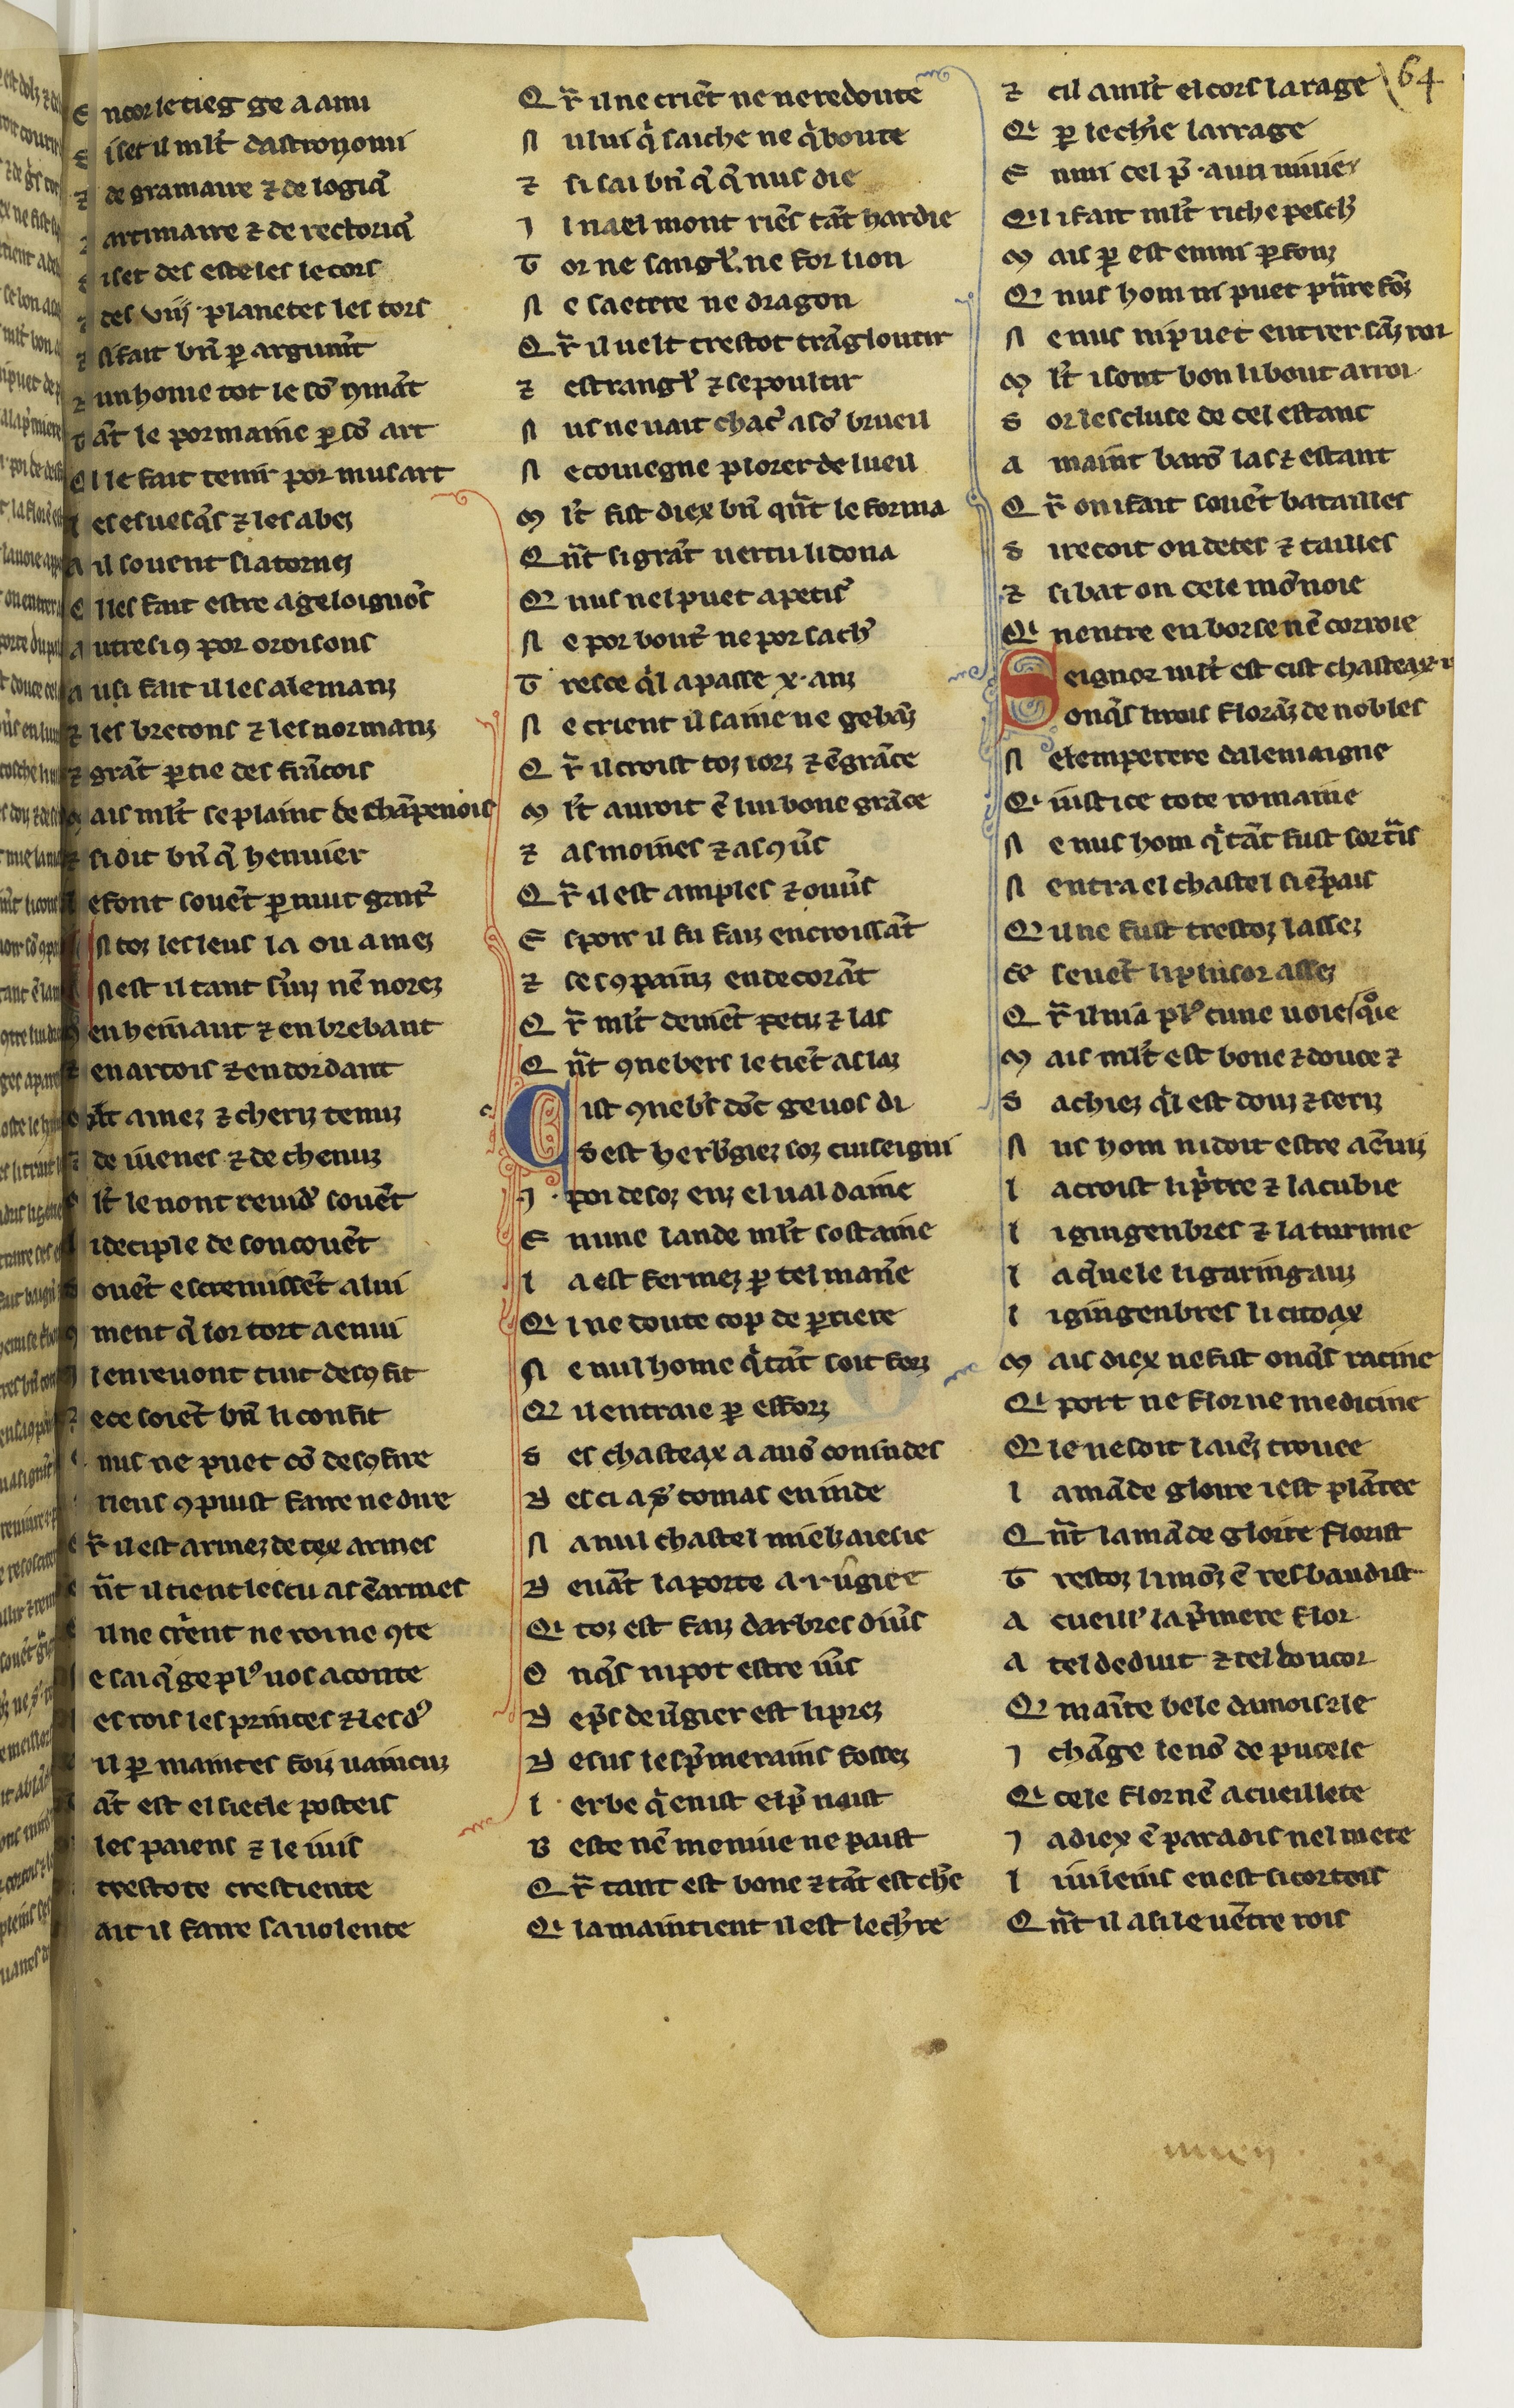 E ncor le tieg ge a ami
E iset il ml't dastronomi
⁊ de gramaire ⁊ de logiq̄
artimaire ⁊ de rectoriq̄
iset des esteles le cors
des viij · planetes les tors
⁊ si fait bn̄ ꝑ argumt̄
⁊ un home tot le sō ꝯmāt
t āt le pormaine ꝑ sō art
Q l le fait tenir por musart
l es esuesq̄s ⁊ les abez
A il souent si atornez
E lles fait estre ageloignōs
A utresi ꝯ por oroisons
A usi fait il les alemanz
⁊ les bretons ⁊ les normanz
⁊ grāt ꝑtie des frācois
ais ml't se plaint de chāpenois
⁊ si dit bn̄ q̄ henuier
e font souēt ꝑ nuit gait̄
N toz les leus la ou amez
N est il tant s'uiz nē norez
en heinaut ⁊ en brebant
en artois ⁊ en dordant
l't amez ⁊ cheriz tenuz
de uienes ⁊ de chenuz
l't le nont reuid' souēt
i deciple de son couēt
ouēt escremissēt a lui
ment q̄ lor tort a enui
l en reuont tuit desꝯfit
ece soiēt bn̄ li confit
nus ne puet cō desꝯfire
riens ꝯ puist faire ne dire
r̄ il est armez de tex armes
n̄t il tient lescu as ēarmes
il ne criēnt ne roi ne ꝯte
e sai q̄ ge pl' uos aconte
es rois les princes ⁊ les d'
il ꝑ maintes foiz uaincuz
āt est el siecle posteis
les paiens ⁊ le iuis
trestote crestiente
ait il faire sa uolente
Q r̄ il ne criēt ne ne redoute
N ului q̄ saiche ne q̄ boute
⁊ si sai bn̄ q̄ q̄ nus die
I l na el mont riēs tāt hardie
T or ne sangl'. ne for lion
N e saetere ne dragon
Q r̄ il uelt trestot trāgloutir
⁊ estrangl' ⁊ sepoultir
N us ne uait chac' a sō brueil
N e couiegne plorer de lueil
M l't fist diex bn̄ qn̄t le forma
Q n̄t si grāt uertu li dona
Q nus nel puet apetis'
N e por bout' ne por sach'
T resce q̄l a passe x · anz
N e crient il saine ne gebāz
Q r̄ il croist toz iorz ⁊ ē grāce
M l't auroit ē lui bone grāce
⁊ as moines ⁊ as ꝯūs
Q r̄ il est amples ⁊ ouūs
E spoir il fu faiz en croissāt
⁊ se ꝯpainz en decorāt
Q r̄ ml't deuiēt petiz ⁊ las
Q n̄t ꝯnebers le tiēt as laz
C ist ꝯneb's dōc ge uos di
S est herb'giez soz cuiseigni
I · poi desoz enz el ual daine
E n une lande ml't soltaine
l a est fermez ꝑ tel man̄e
Qi ne doute cop de ꝑriere
N e nul home q̄ tāt soit forz
Q il entraie ꝑ efforz
S es chasteax a auō conindes
D es ci a s' tomas en inde
N a nul chastel mielz aiesie
D euāt la porte a · i · u'gier
Qi toz est faiz darbres diūs
O nq̄s ni pot estre iūs
D ep̄s de u'gier est li prez
D esus les p̄merains fossez
l erbe q̄ en ist el p̄ naist
B este nē meniue ne paist
Q r̄ tant est bone ⁊ tāt est ch'e
Qi la maintient il est lech're
⁊ cil a ml't el cors la rage
Qi ꝑ lech'ie larrage
E nmi cel p̄ · a un uiuier
Qi i fait ml't riche peschz
M ais ꝑ est enuis ꝑfonz
Q nus hom ni puet pn̄re fōz
N e nus ni puet entrer sāz roi
M l't i sont bon li bout arroi
S or lescluse de cel estanc
A maint barō las ⁊ estant
Q r̄ on i fait souēt batailles
S i recoit on detes ⁊ tailles
⁊ si bat on cele mōnoie
Qi nentre en borse nē corroie
S eignor ml't est cist chasteax
onq̄s li rois florāz de nobles
N e lemperere dalemaigne
Qi iustice tote romaine
N e nus hom q̄ tāt fust sortis
N entra el chastel si ēpais
Q il ne fust trestoz lassez
se seuēt li plusor assez
Q r̄ il nia pl' cune uoie
M ais ml't est bone ⁊ douce ⁊ q̊ie
S achiez q̄l est douz ⁊ seriz
N us hom ni doit estre acēuiz
l a croist li p̄tre ⁊ la cubie
l i gingenbres ⁊ la turinie
l a q̄nele li garingauz
l i gingenbres li citoax
M ais diex ne fist onq̄s racine
Qi port ne flor ne medicine
Q le ne soit laiēz trouee
l amāde gloire i est plātee
Q n̄t lamāde gloire florist
T restoz li mōz ē resbaudist
A cueul' la p̄mere flor
A tel deduit ⁊ tel doucor
Q maīte bele damoisele
I chāge le nō de pucele
Qi cele flor nē a cueillete
I a diex ē paradis nel mete
l i iuleins en est si cortois
Q n̄t il a si le uētre rois
64